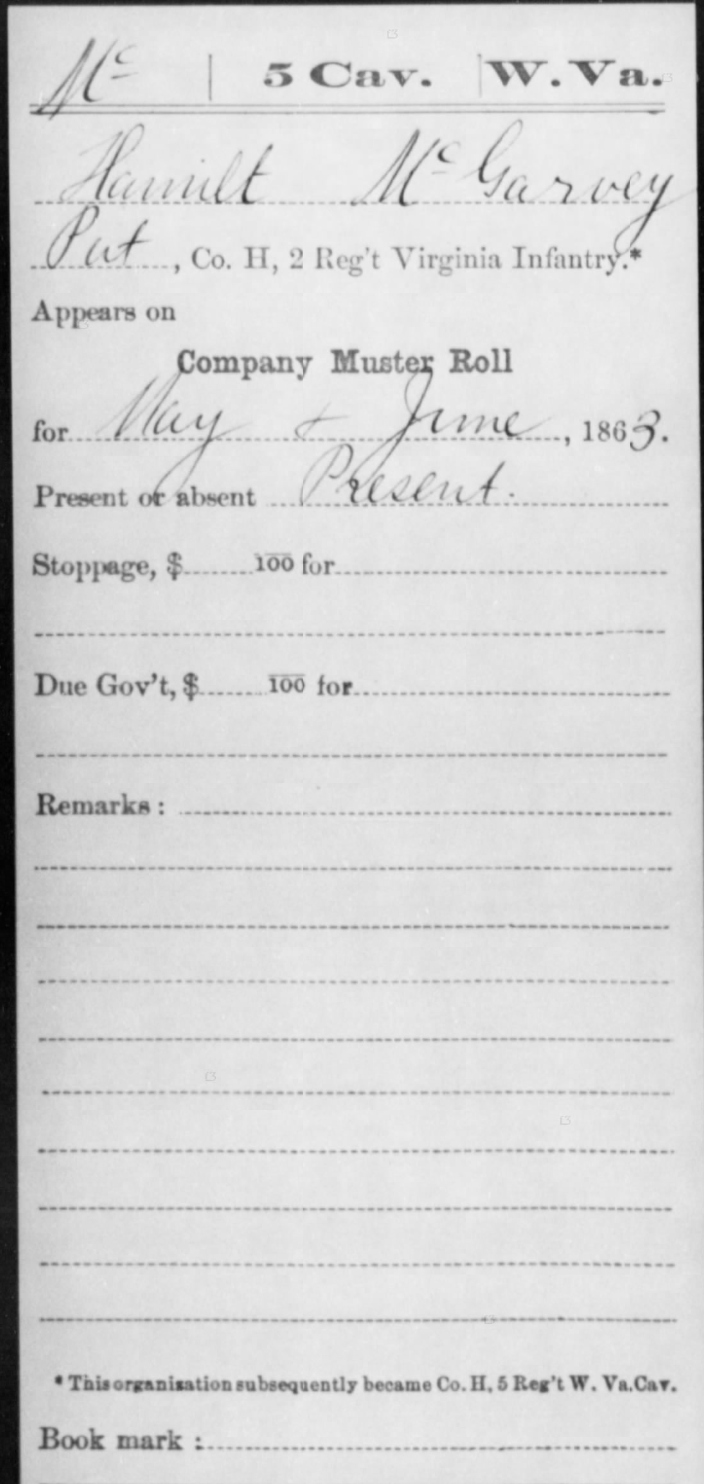 Mc | 5 Cav. | W. Va.
Hamilt McGarvey
Pvt, Co. H, 2 Reg't Virginia Infantry.*
Appears on
Company Muster Roll
for May & June, 1863.
Present or absent Present.
Stoppage, $ 100 for
Due Gov't, $ 100 for
Remarks:
* This organization subsequently became Co. H, 5 Reg't W. Va. Cav.
Book mark: